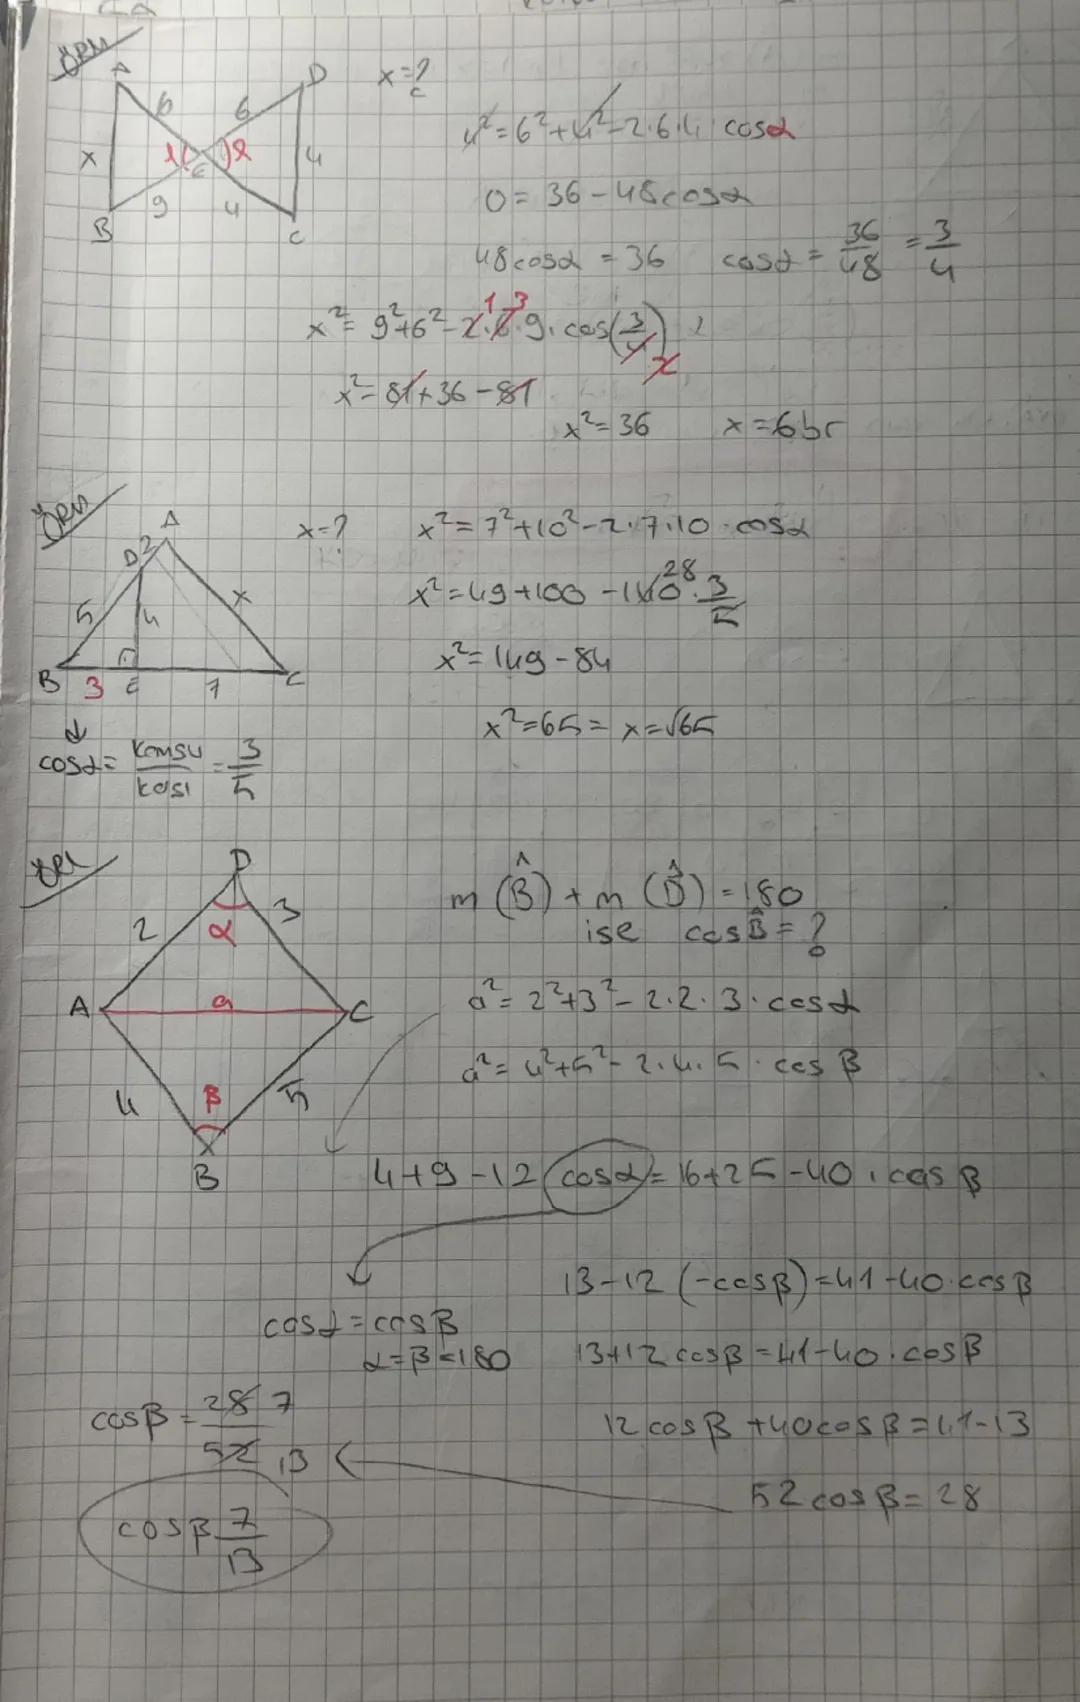 ÖRN
A
D
x=?
6
6
x
α
α
E
4
9
4
B
C
4²=6²+4²-2·6·4 cosα
0=36-48cosα
48cosα=36 cosα=36/48=3/4
x²=9²+6²-2·6·9·cos(3/4)
1 3
x²=81+36-81
x²=36 x=6br
ÖRN
A
D
2
x=?
5
4
x
B
3
E
7
C
x²=7²+10²-2·7·10·cosα
x²=49+100-140·3/5
28
x²=149-84
x²=65=x=√65
cosα=komsu/kosi=3/5
ÖRN
D
2
3
α
A
a
C
4
5
β
B
m(B̂)+m(D̂)=180
ise cosB̂=?
a²=2²+3²-2·2·3·cosα
a²=4²+5²-2·4·5·cosβ
4+9-12cosα=16+25-40·cosβ
13-12(-cosβ)=41-40·cosβ
cosα=cosβ
α=β=180
13+12cosβ=41-40·cosβ
12cosβ+40cosβ=41-13
52cosβ=28
cosβ=28/52 7 13
cosβ 7/13